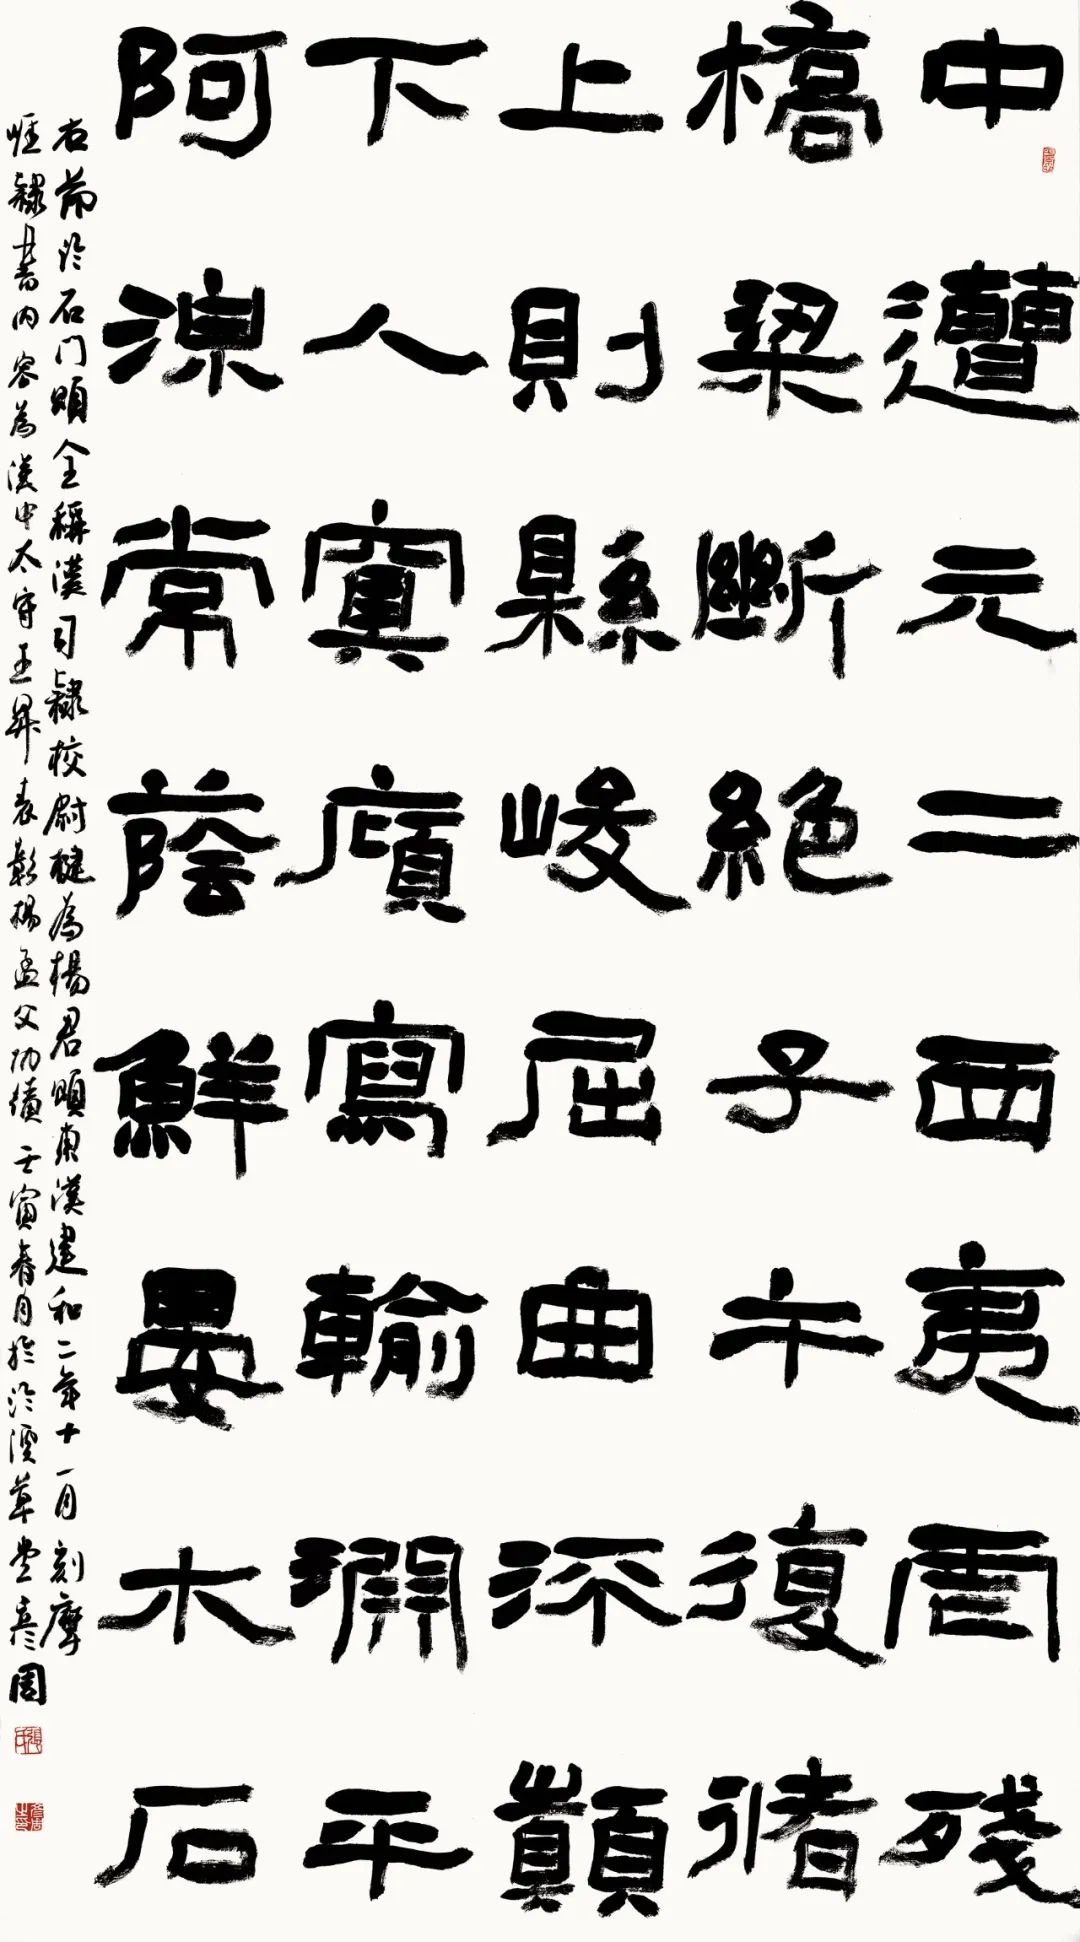 中遭元二西夷虐殘
橋梁斷絕子午復循
上則縣峻屈曲流顛
下入冥廎寫輸淵平
阿湶常蔭鮮晏木石
右節臨石門頌全稱漢司隸校尉楗為楊君頌東漢建和二年十一月刻摩
崖隸書內容為漢中太守王昇表彰楊孟父功績壬寅春月於溪草堂彥周